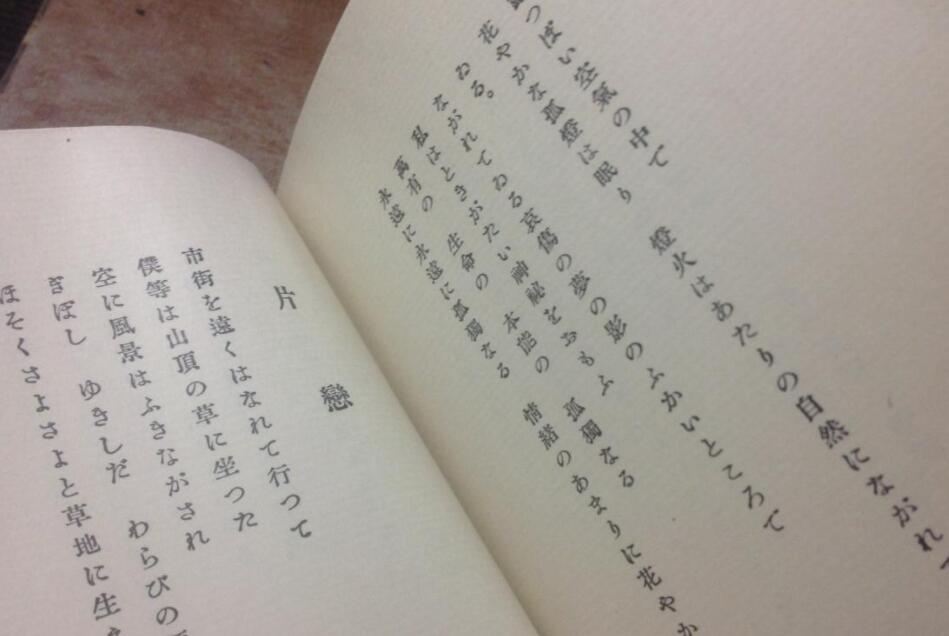 つぽい空氣の中で
花やかな孤燈は眠り　燈火はあたりの自然にながれ
ゐる。
ながれてゐる哀傷の夢の影のふかいところで
私はときがたい神祕をおもふ
萬有の　生命の　本能の　孤獨なる
永遠に永遠に孤獨なる　情緒のあまりに花やか
片戀
市街を遠くはなれて行つて
僕等は山頂の草に坐つた
空に風景はふきながされ
ぎぼし　ゆきしだ　わらびの
ほそくさよさよと草地に生